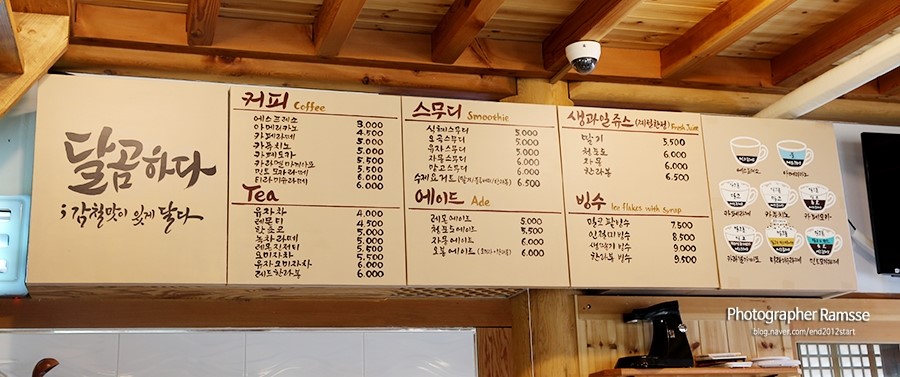 달콤하다
; 감칠맛이 있게 달다
커피 Coffee
에스프레소 3,000
아메리카노 4,500
카페라떼 5,000
카푸치노 5,000
카페모카 5,500
카라멜마끼아또 6,000
민트모카라떼
티라미수라떼 6,000
Tea
유자차 4,000
레몬티 4,500
핫쵸코 5,000
녹차라떼 5,000
레몬진저티 5,500
오미자차 5,500
유자오미자차 6,000
레드한라봉 6,000
스무디 Smoothie
식혜스무디 5,000
요곰스무디 5,000
유자스무디 5,000
자몽스무디 6,000
망고스무디 6,000
수제요거트 6,500
에이드 Ade
레몬에이드 5,000
청포도에이드 5,500
자몽에이드 6,000
오봉에이드 6,000
생과일쥬스 (계절한정) Fresh Juice
딸기 5,500
청포도 6,000
자몽 6,000
한라봉 6,500
빙수 Ice flakes with syrup
망고팥빙수 7,500
인절미빙수 8,500
생딸기빙수 9,000
한라봉빙수 9,500
에스프레소 아메리카노
카페라떼 카푸치노 카페모카
카라멜마끼아또 티라미수라떼 민트모카라떼
Photographer Ramsse
blog.naver.com/end2012start